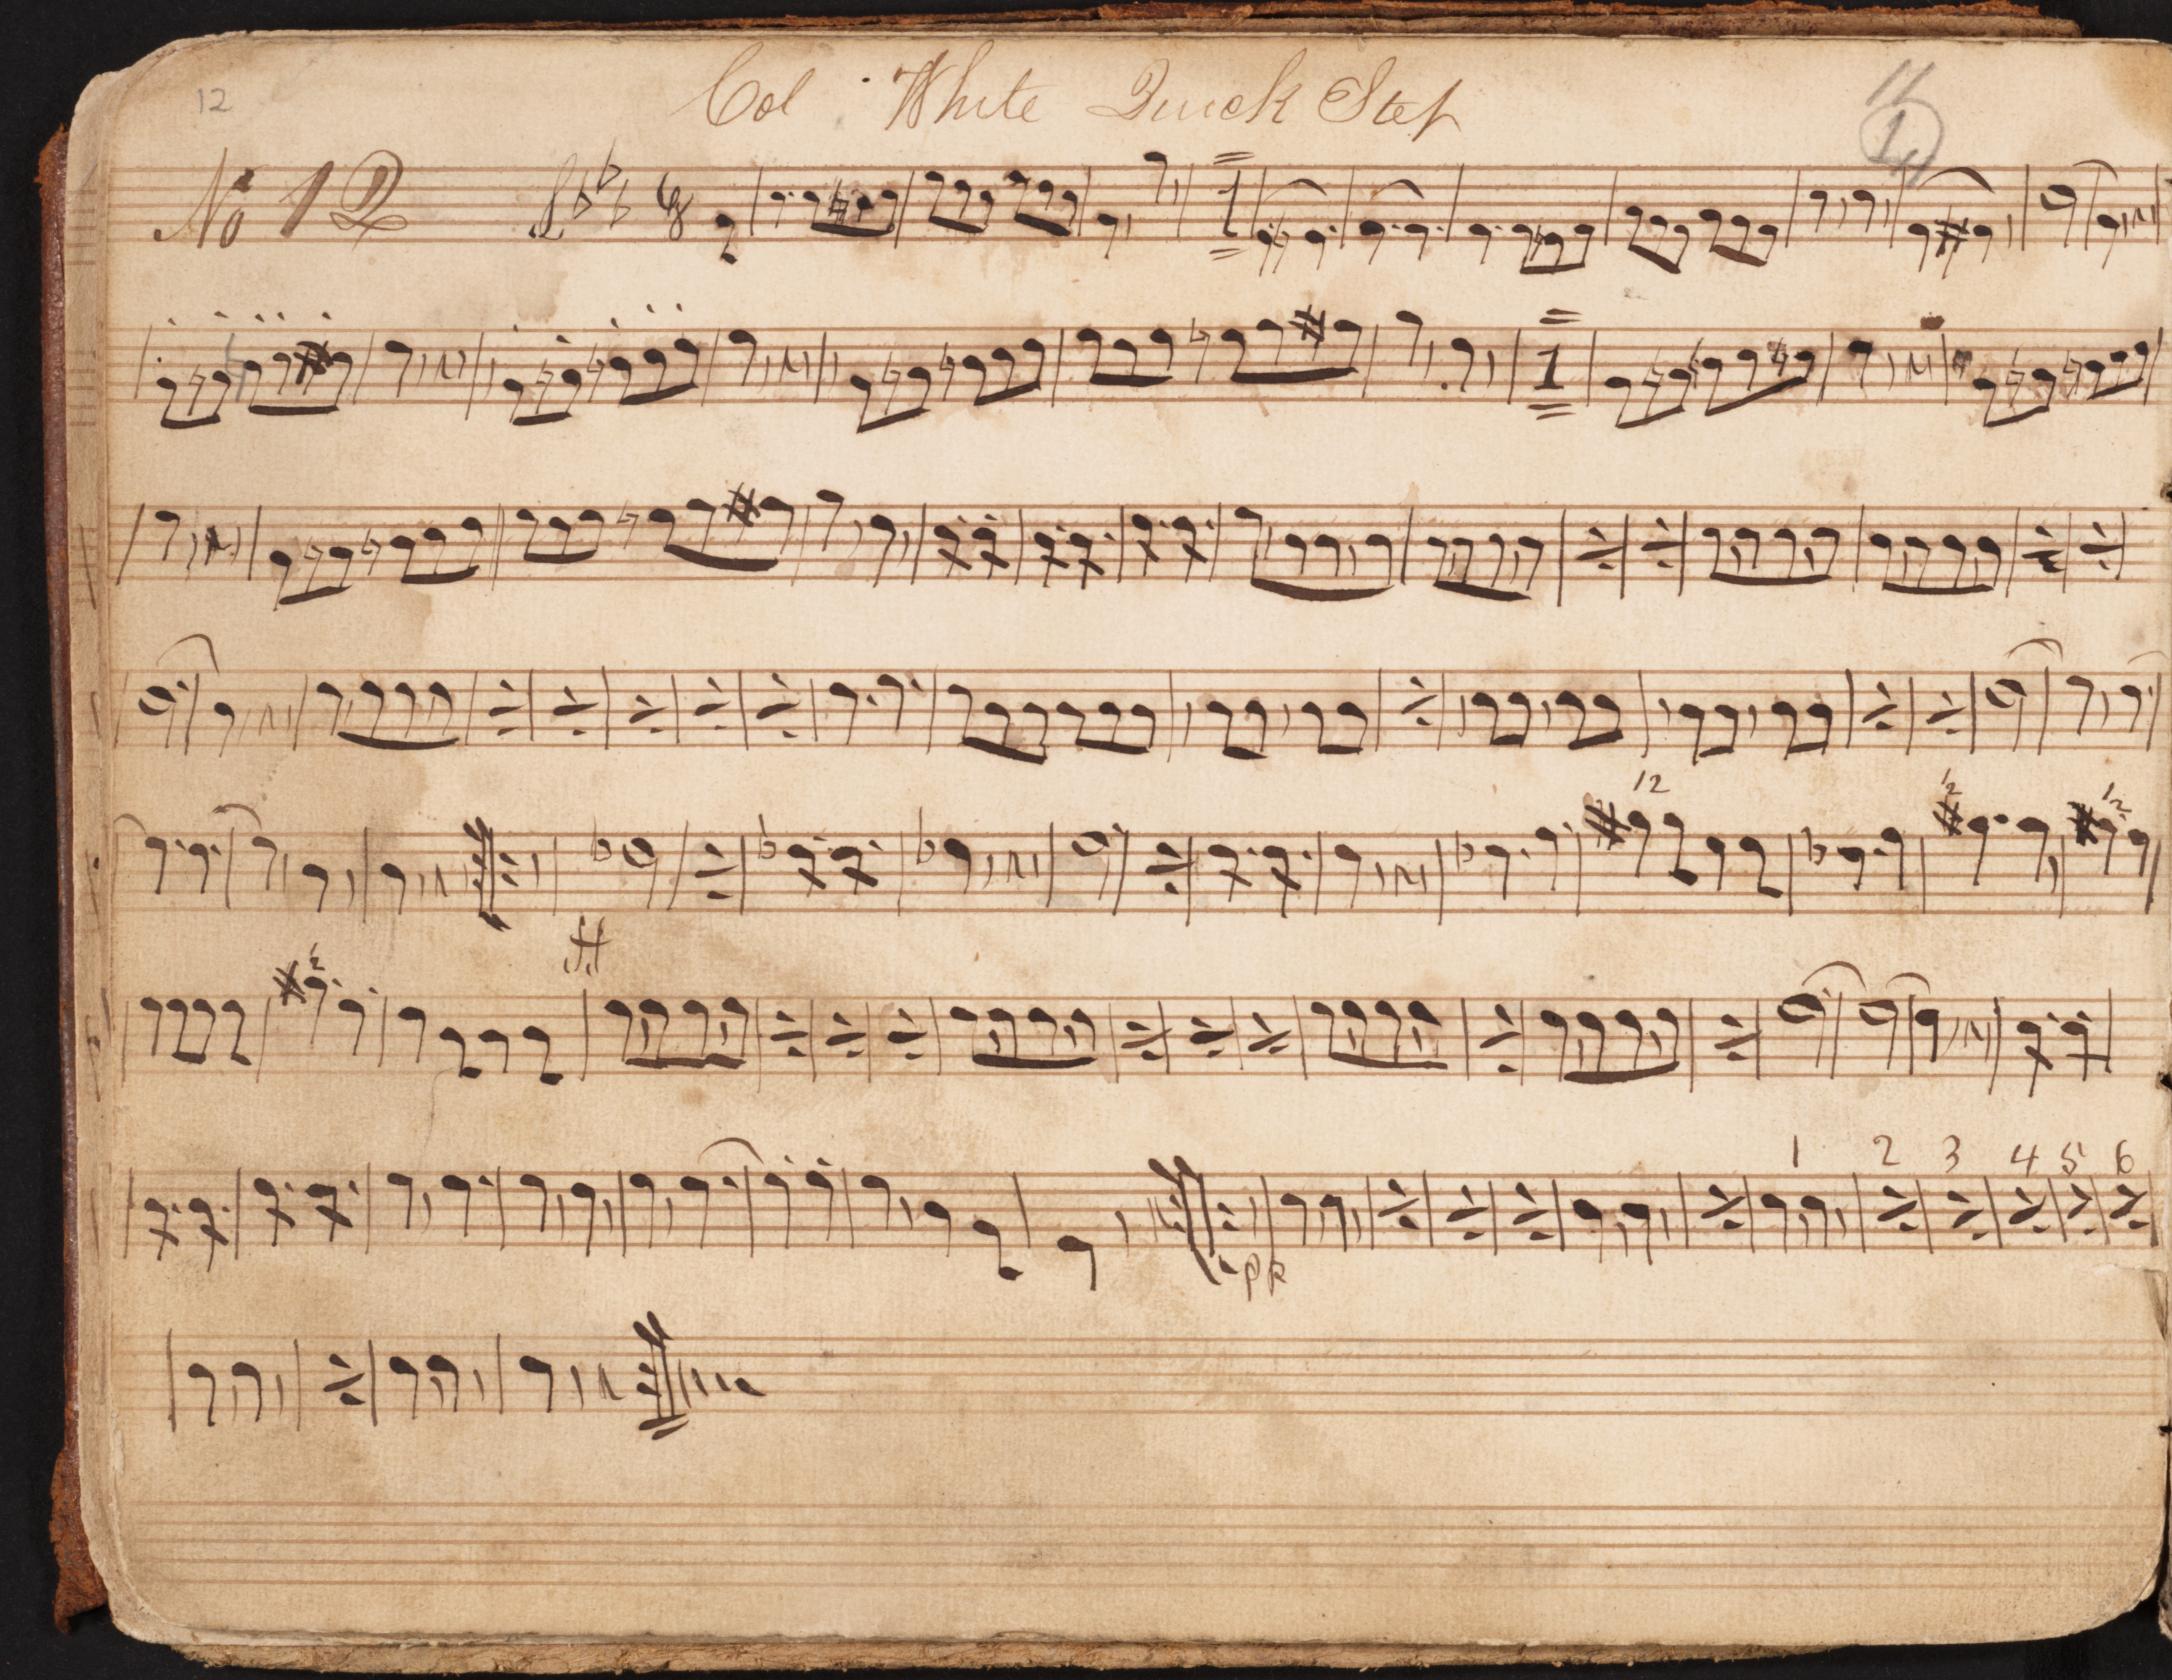 12
Col White Quick Step
No 12
6/8
1
1
12
12
12
ff
12
1 2 3 4 5 6
pp